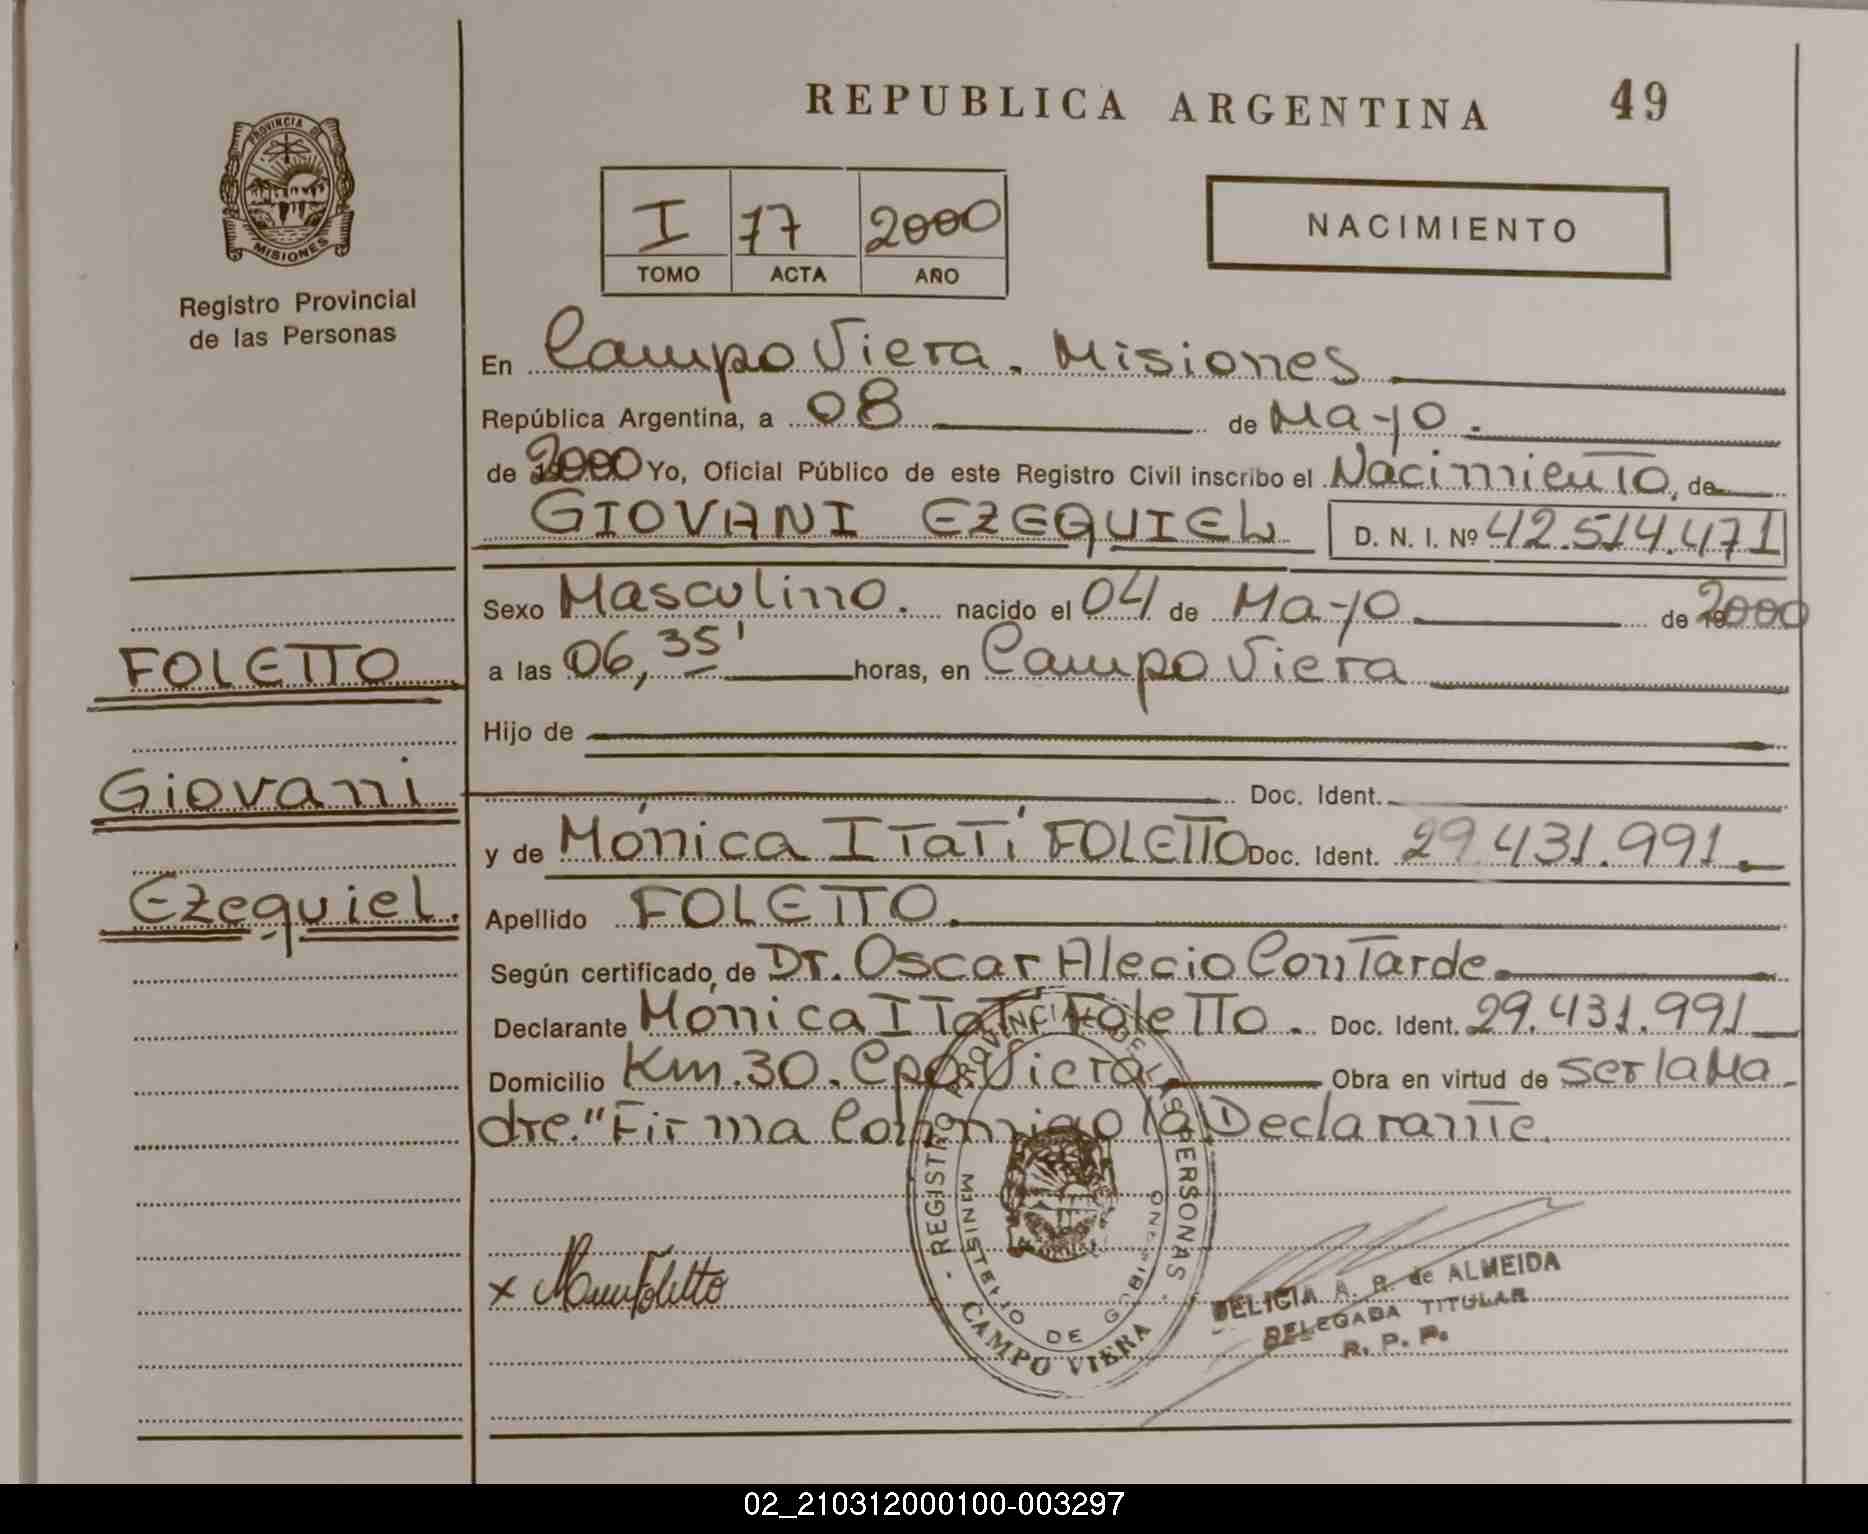 REPUBLICA ARGENTINA 49
PROVINCIA DE MISIONES
Registro Provincial
de las Personas
I 77 2000
TOMO ACTA AÑO
NACIMIENTO
En Campo Viera. Misiones
República Argentina, a 08 de Mayo.
de 2000 Yo, Oficial Público de este Registro Civil inscribo el Nacimiento, de
GIOVANI EZEQUIEL D. N. I. Nº 42.514.471
Sexo Masculino. nacido el 04 de Mayo de 2000
a las 06,35' horas, en Campo Viera
Hijo de
Doc. Ident.
y de Mónica ITaTí FOLETTO Doc. Ident. 29.431.991.
Apellido FOLETTO.
Según certificado, de Dr. Oscar Alecio ConTarde.
Declarante Mónica ITaTí FoleTTo. Doc. Ident. 29.431.991
Domicilio Km.30. Cpo Viera Obra en virtud de ser la Ma-
dre." Firma Conmigo la Declarante.
FOLETTO
Giovani
Ezequiel.
x
REGISTRO PROVINCIAL DE LAS PERSONAS
MINISTERIO DE GOBIERNO
CAMPO VIERA
DELICIA A. R. de ALMEIDA
DELEGADA TITULAR
R. P. P.
02_210312000100-003297